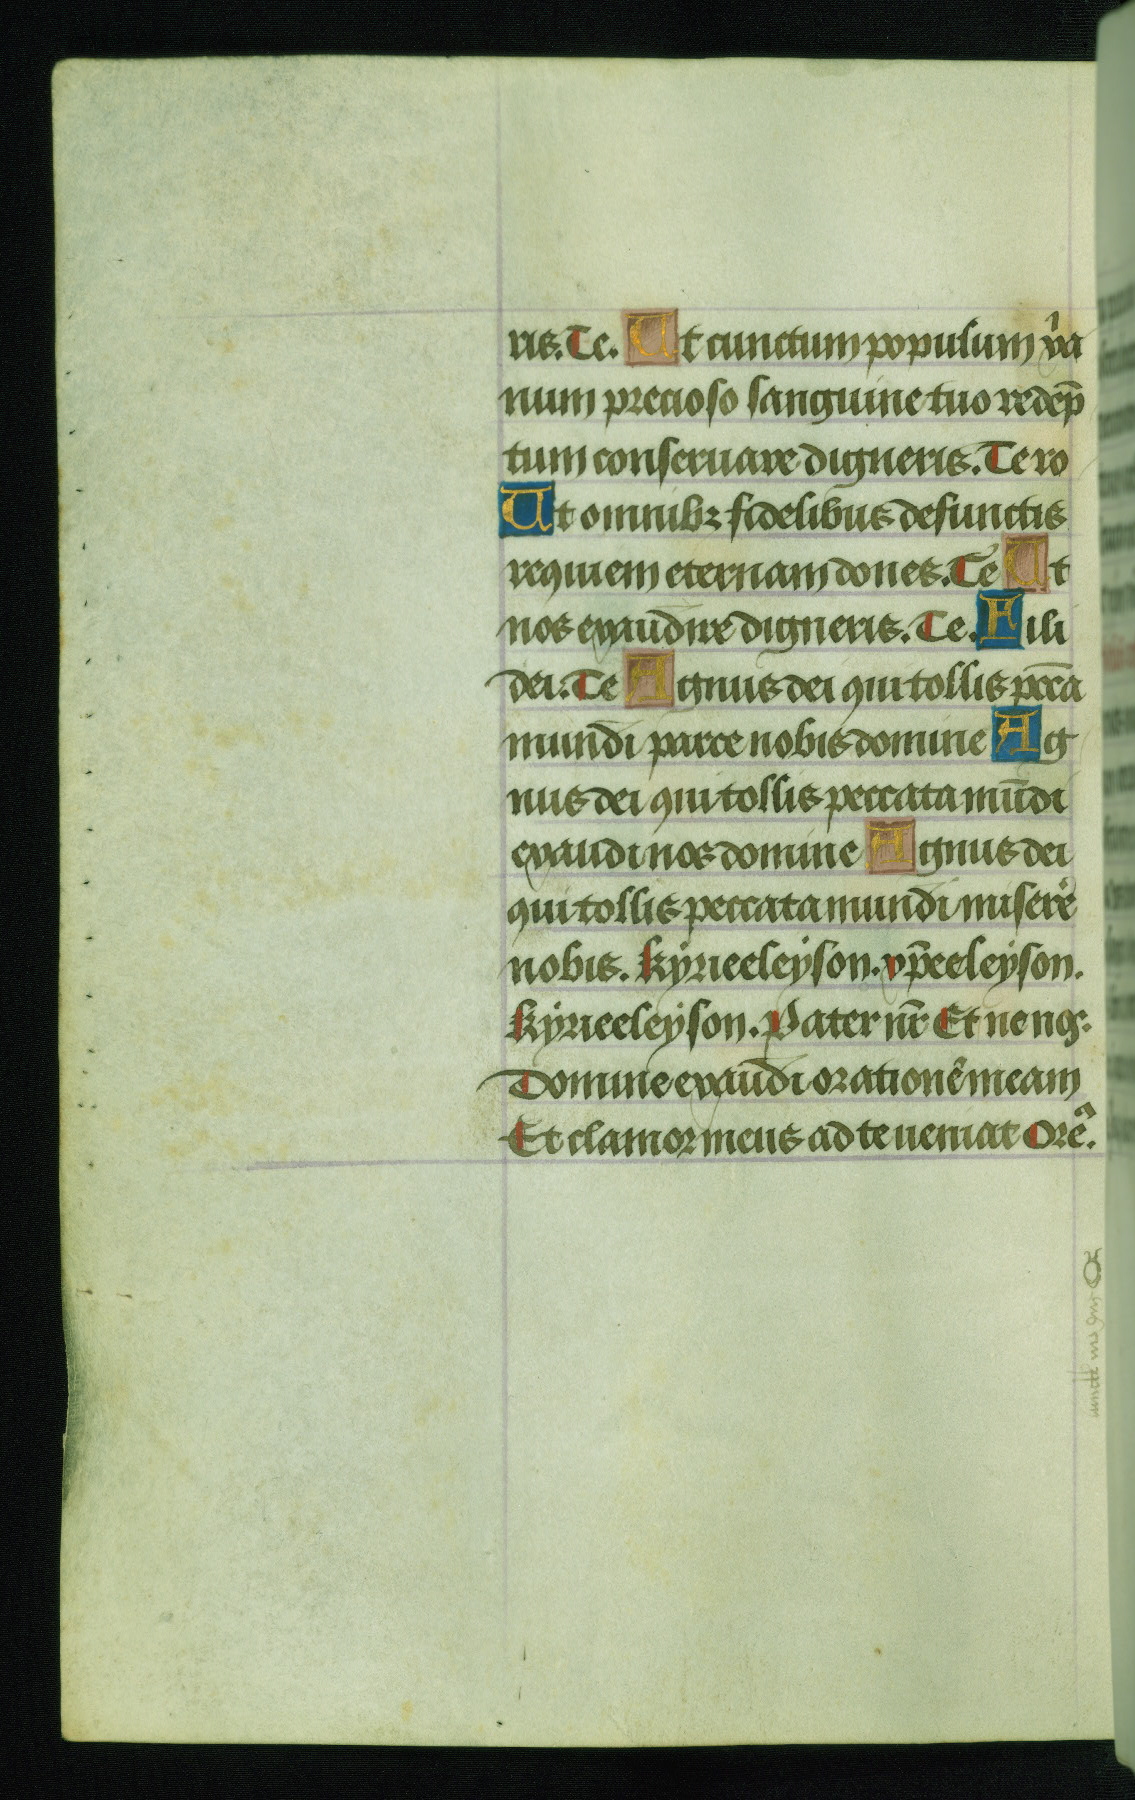 ris. Te. Ut cunctum populum xp̄ia
num precioso sanguine tuo redep̄
tum conseruare digneris. Te ro
Ut omnibꝫ fidelibus defunctis
requiem eternam dones. Te Ut
nos exaudire digneris. Te. Fili
dei. Te Agnus dei qui tollis pcc̄a
mundi parce nobis domine Ag
nus dei qui tollis peccata mūdi
exaudi nos domine Agnus dei
qui tollis peccata mundi miserē
nobis. kyrieeleyson. xp̄eeleyson.
kyrieeleyson. Pater nr̄ Et ne nos.
Domine exaudi orationē meam
Et clamor meus ad te ueniat Orē.